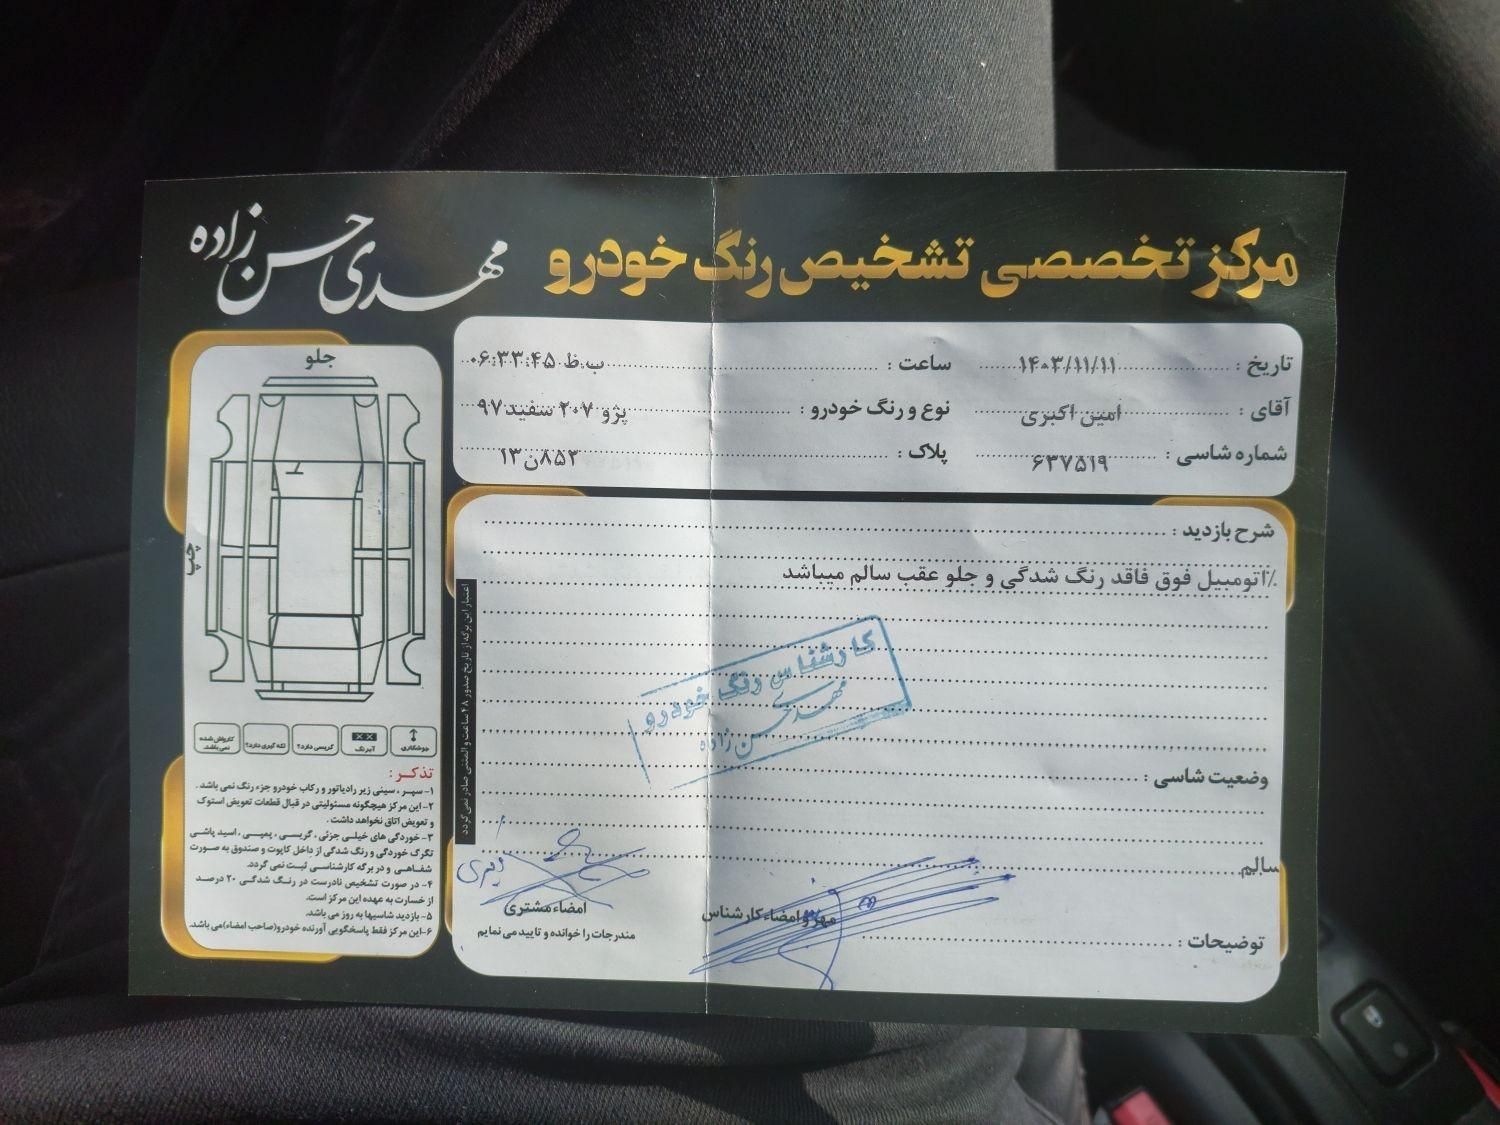 مرکز تخصصی تشخیص رنگ خودرو
مهدی حسن زاده
تاریخ : ۱۴۰۳/۱۱/۱۱
ساعت : ۰۶:۳۳:۴۵ ب.ظ
آقای : امین اکبری
نوع و رنگ خودرو : پژو ۲۰۷ سفید ۹۷
شماره شاسی : ۶۳۷۵۱۹
پلاک : ۸۵۲ن۱۳
شرح بازدید :
٪اتومبیل فوق فاقد رنگ شدگی و جلو عقب سالم میباشد
کارشناس رنگ خودرو
مهدی حسن زاده
وضعیت شاسی :
سالم
توضیحات :
مهر و امضاء کارشناس
امضاء مشتری
مندرجات را خوانده و تایید می نمایم
اعتبار این برگه از تاریخ صدور ۴۸ ساعت و المثنی صادر نمی گردد
جلو
چپ
جوشکاری
آبرنگ
گریسی دارد؟
لکه گیری دارد؟
کارواش شده نمی باشد.
تذکر :
۱- سپر ، سینی زیر رادیاتور و رکاب خودرو جزء رنگ نمی باشد .
۲- این مرکز هیچگونه مسئولیتی در قبال قطعات تعویض استوک
و تعویض اتاق نخواهد داشت .
۳- خوردگی های خیلی جزئی ، گریسی ، پمپی ، اسید پاشی
تگرگ خوردگی و رنگ شدگی از داخل کاپوت و صندوق به صورت
شفاهی و در برگه کارشناسی ثبت نمی گردد.
۴- در صورت تشخیص نادرست در رنگ شدگی ۲۰ درصد
از خسارت به عهده این مرکز است.
۵- بازدید شاسیها به روز می باشد.
۶- این مرکز فقط پاسخگویی آورنده خودرو(صاحب امضاء)می باشد.